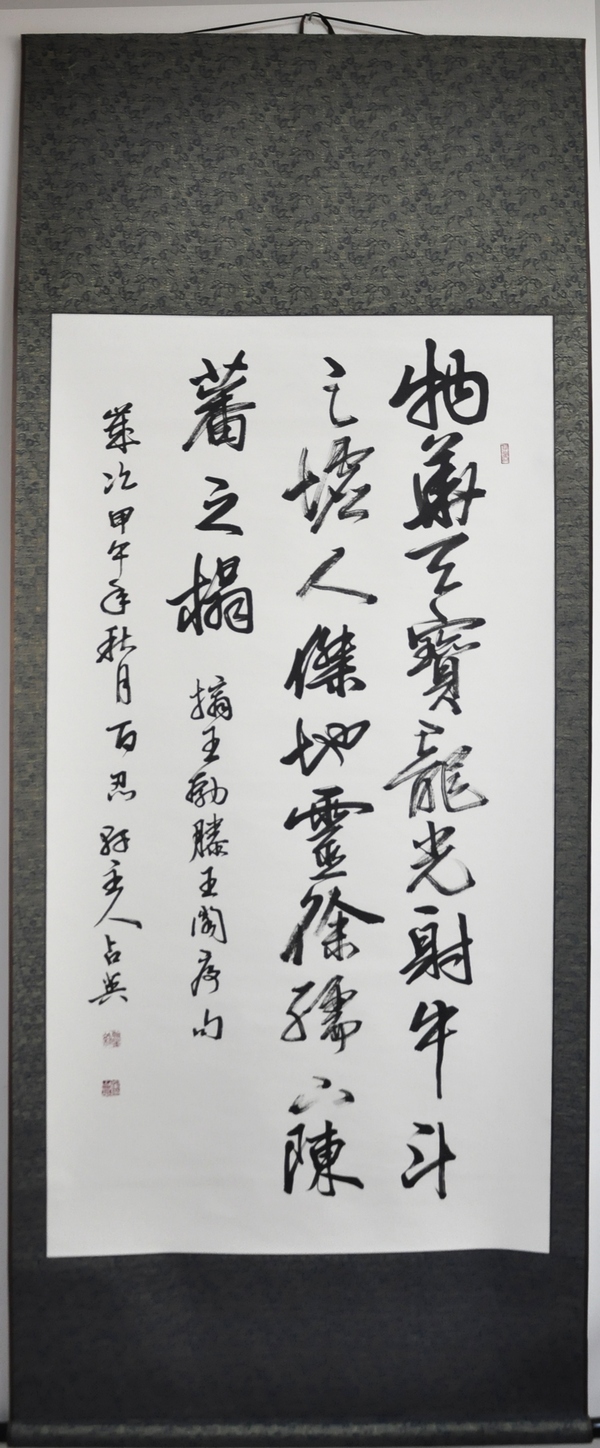 物華天寶龍光射牛斗
之墟人傑地靈徐孺下陳
蕃之榻
摘王勃滕王閣序句
歲次甲午年秋月百忍軒主人占興